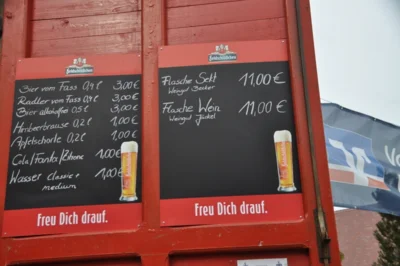 Bier vom Fass 0,4 l 3,00 €
Radler vom Fass 0,4 l 3,00 €
Bier alkoholfrei 0,5 l 3,00 €
Himbeerbrause 0,2 l 1,00 €
Apfelschorle 0,2 l 1,00 €
Cola/Fanta/Zitrone 1,00 €
Wasser classic + 1,00 €
medium
Freu Dich drauf.
Flasche Sekt 11,00 €
Weingut Becker
Flasche Wein 11,00 €
Weingut
Freu Dich drauf.